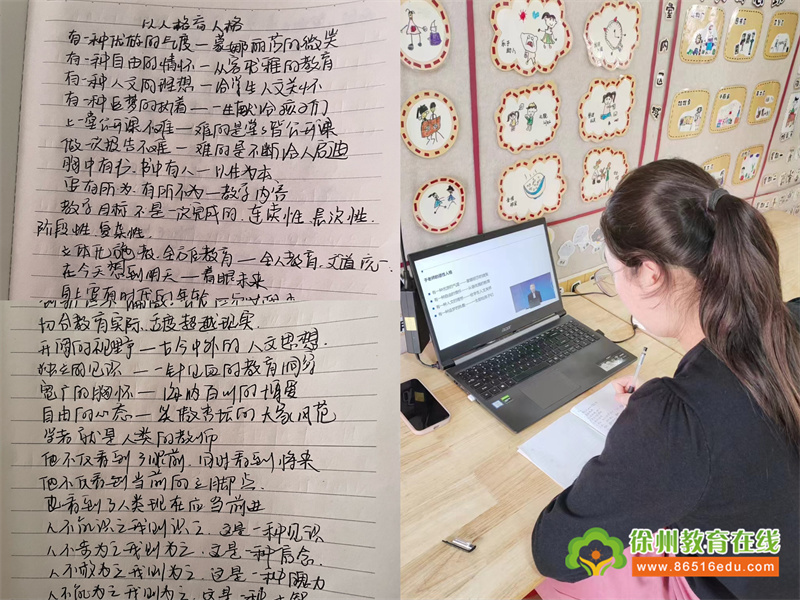 以人格育人格
有一种优雅的气度—蒙娜丽莎的微笑
有一种自由的情怀—从容书雅的教育
有一种人文的理想—给学生人文关怀
有一种追梦的执着——一生献给孩子们
上一堂公开课不难—难的是堂堂皆公开课
做一次报告不难—难的是不断给人启迪
胸中有书,书中有人—以生为本
要有所为,有所不为—教学内容
教学目标不是一次完成的,连续性,层次性,
阶段性,复杂性.
立体化施教,全方位教育——全人教育,文道统一.
在今天想到明天—着眼未来
切合教育实际,适度超越现实.
开阔的视野—古今中外的人文思想.
独立的见识—一针见血的教育洞分
宽广的胸怀—海纳百川的博爱
自由的心态—笑傲杏坛的大家风范
学者就是人类的教师
他不仅看到了眼前,同时看到将来
他不仅看到当前的立脚点.
也看到了人类现在应当前进
人不能识之我则识之,这是一种见识
人不为之我则为之,这是一种信念.
人不敢为之我则为之,这是一种魄力
人不能为之我则为之,这是一种
于老师的语性人格
acer
徐州教育在线
www.86516edu.com